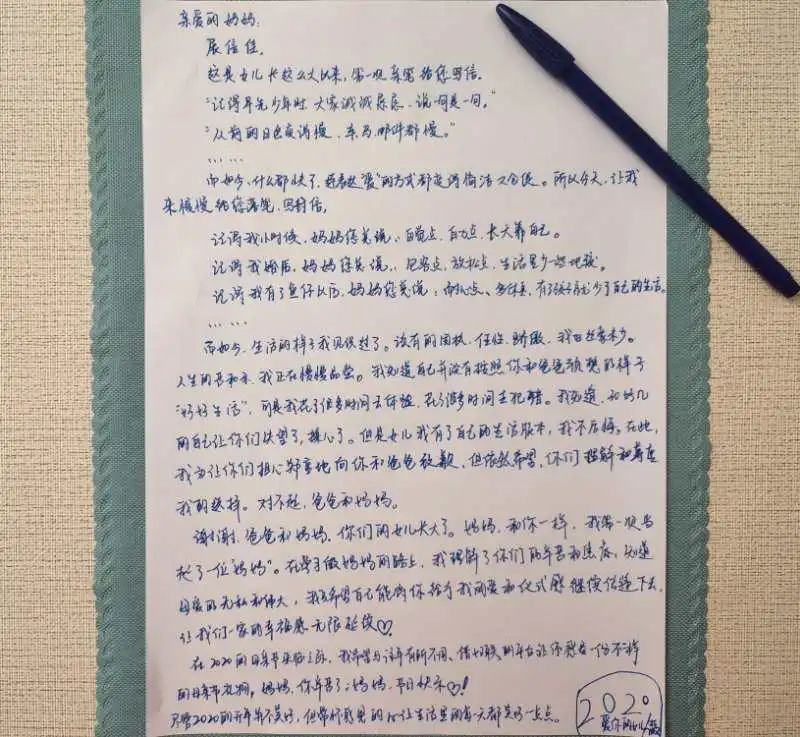 亲爱的妈妈:
展信佳。
这是女儿长这么大以来,第一次亲笔给您写信。
“记得早先少年时 大家诚诚恳恳,说一句是一句。”
“从前的日色变得慢,车马、邮件都慢。”
……
而如今,什么都快了,连表达爱的方式都走得简洁又仓促。所以今天,让我
来慢慢给您落笔,写封信。
记得我小时候,妈妈您总说:自觉点,自力点,长大养自己。
记得我婚后,妈妈您总说:包容点,放松点,生活里少些地
记得我有了鱼仔以后,妈妈您总说:,多休息,有了孩子就少了自己的生活。
……
而如今,生活的样子我见识过了。该有的固执、任性、骄傲,我一丝未少。
人生的苦和乐,我正在慢慢品尝。我知道自己并没有按照你和爸爸预想的样子
“好好生活”,可是我花了很多时间去体验,花了很多时间去犯错。我知道,
的自己让你们失望了,操心了。但是女儿我有了自己的生活版本,我不后悔。在此,
我为让你们担心郑重地向你和爸爸致歉,但依然希望,你们理解和尊重
我的选择。对不起,爸爸和妈妈。
谢谢,爸爸和妈妈,你们的女儿长大了。妈妈,和你一样,我第一次当
了一位“妈妈”。在学习做妈妈的路上,我理解了你们的辛苦和焦虑,知道
母爱的无私和伟大,我希望自己能将你给予我的爱和仪式感继续传递下去,
让我们一家的幸福感无限延续♡。
在2020的母亲节来临之际,我希望与往年有所不同,借的平台让你惹有一份不一样
的母亲节礼物,妈妈,你辛苦了;妈妈,节日快乐♡!
尽管2020的开年并不美好,但常怀的心让生活里的每一天都美好一点点。
2020
爱你的女儿